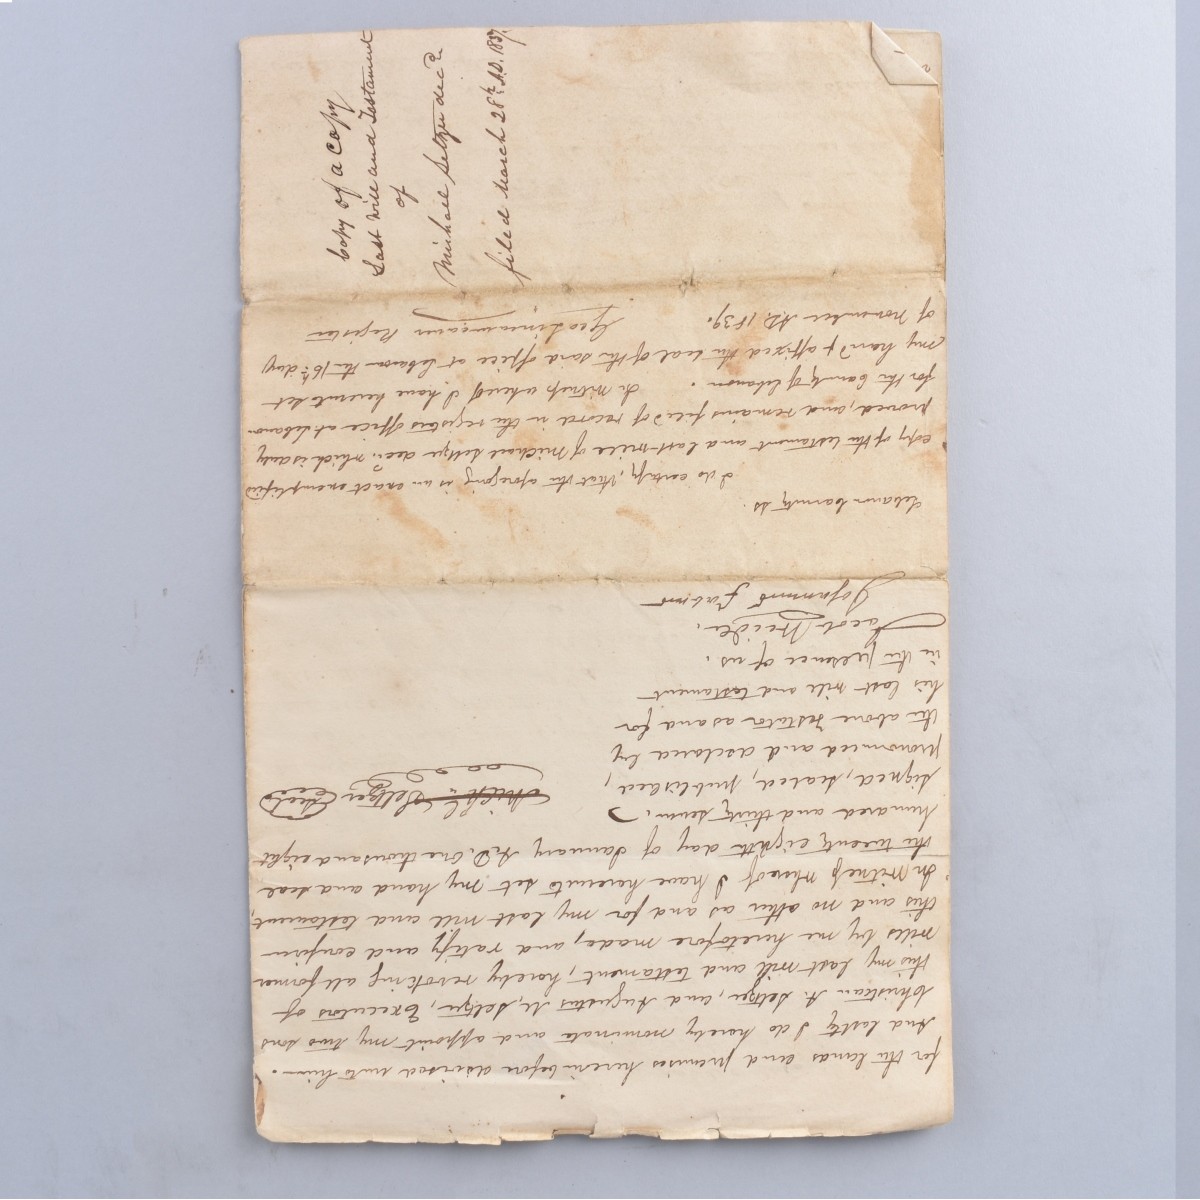 for the lands and premises herein before devised unto him.
And lastly I do hereby nominate and appoint my two sons
Christian A. Seltzer, and Augustus M. Seltzer, Executors of
this my last will and testament, hereby revoking all former
wills by me heretofore made, and ratify and confirm
this and no other as and for my last will and testament,
In Witness whereof I have hereunto set my hand and seal
the twenty eighth day of January A.D. One thousand eight
hundred and thirty seven.
Signed, sealed, published,
pronounced and declared by
the above Testator as and for
his last will and testament
in the presence of us.
Mich. Seltzer Seal
Jacob Weidle.
Lebanon County ss.
I do certify, that the aforegoing is an exact exemplified
copy of the testament and last will of Michael Seltzer decd. which is duly
proved, and remains filed of record in the registers office at Lebanon
for the County of Lebanon. In Witness whereof I have hereunto set
my hand & affixed the seal of the said office at Lebanon the 16th day
of November A.D. 1839.
Register
Copy of a Copy
Last Will and Testament
of
Michael Seltzer decd.
filed March 28th A.D. 1837.
2